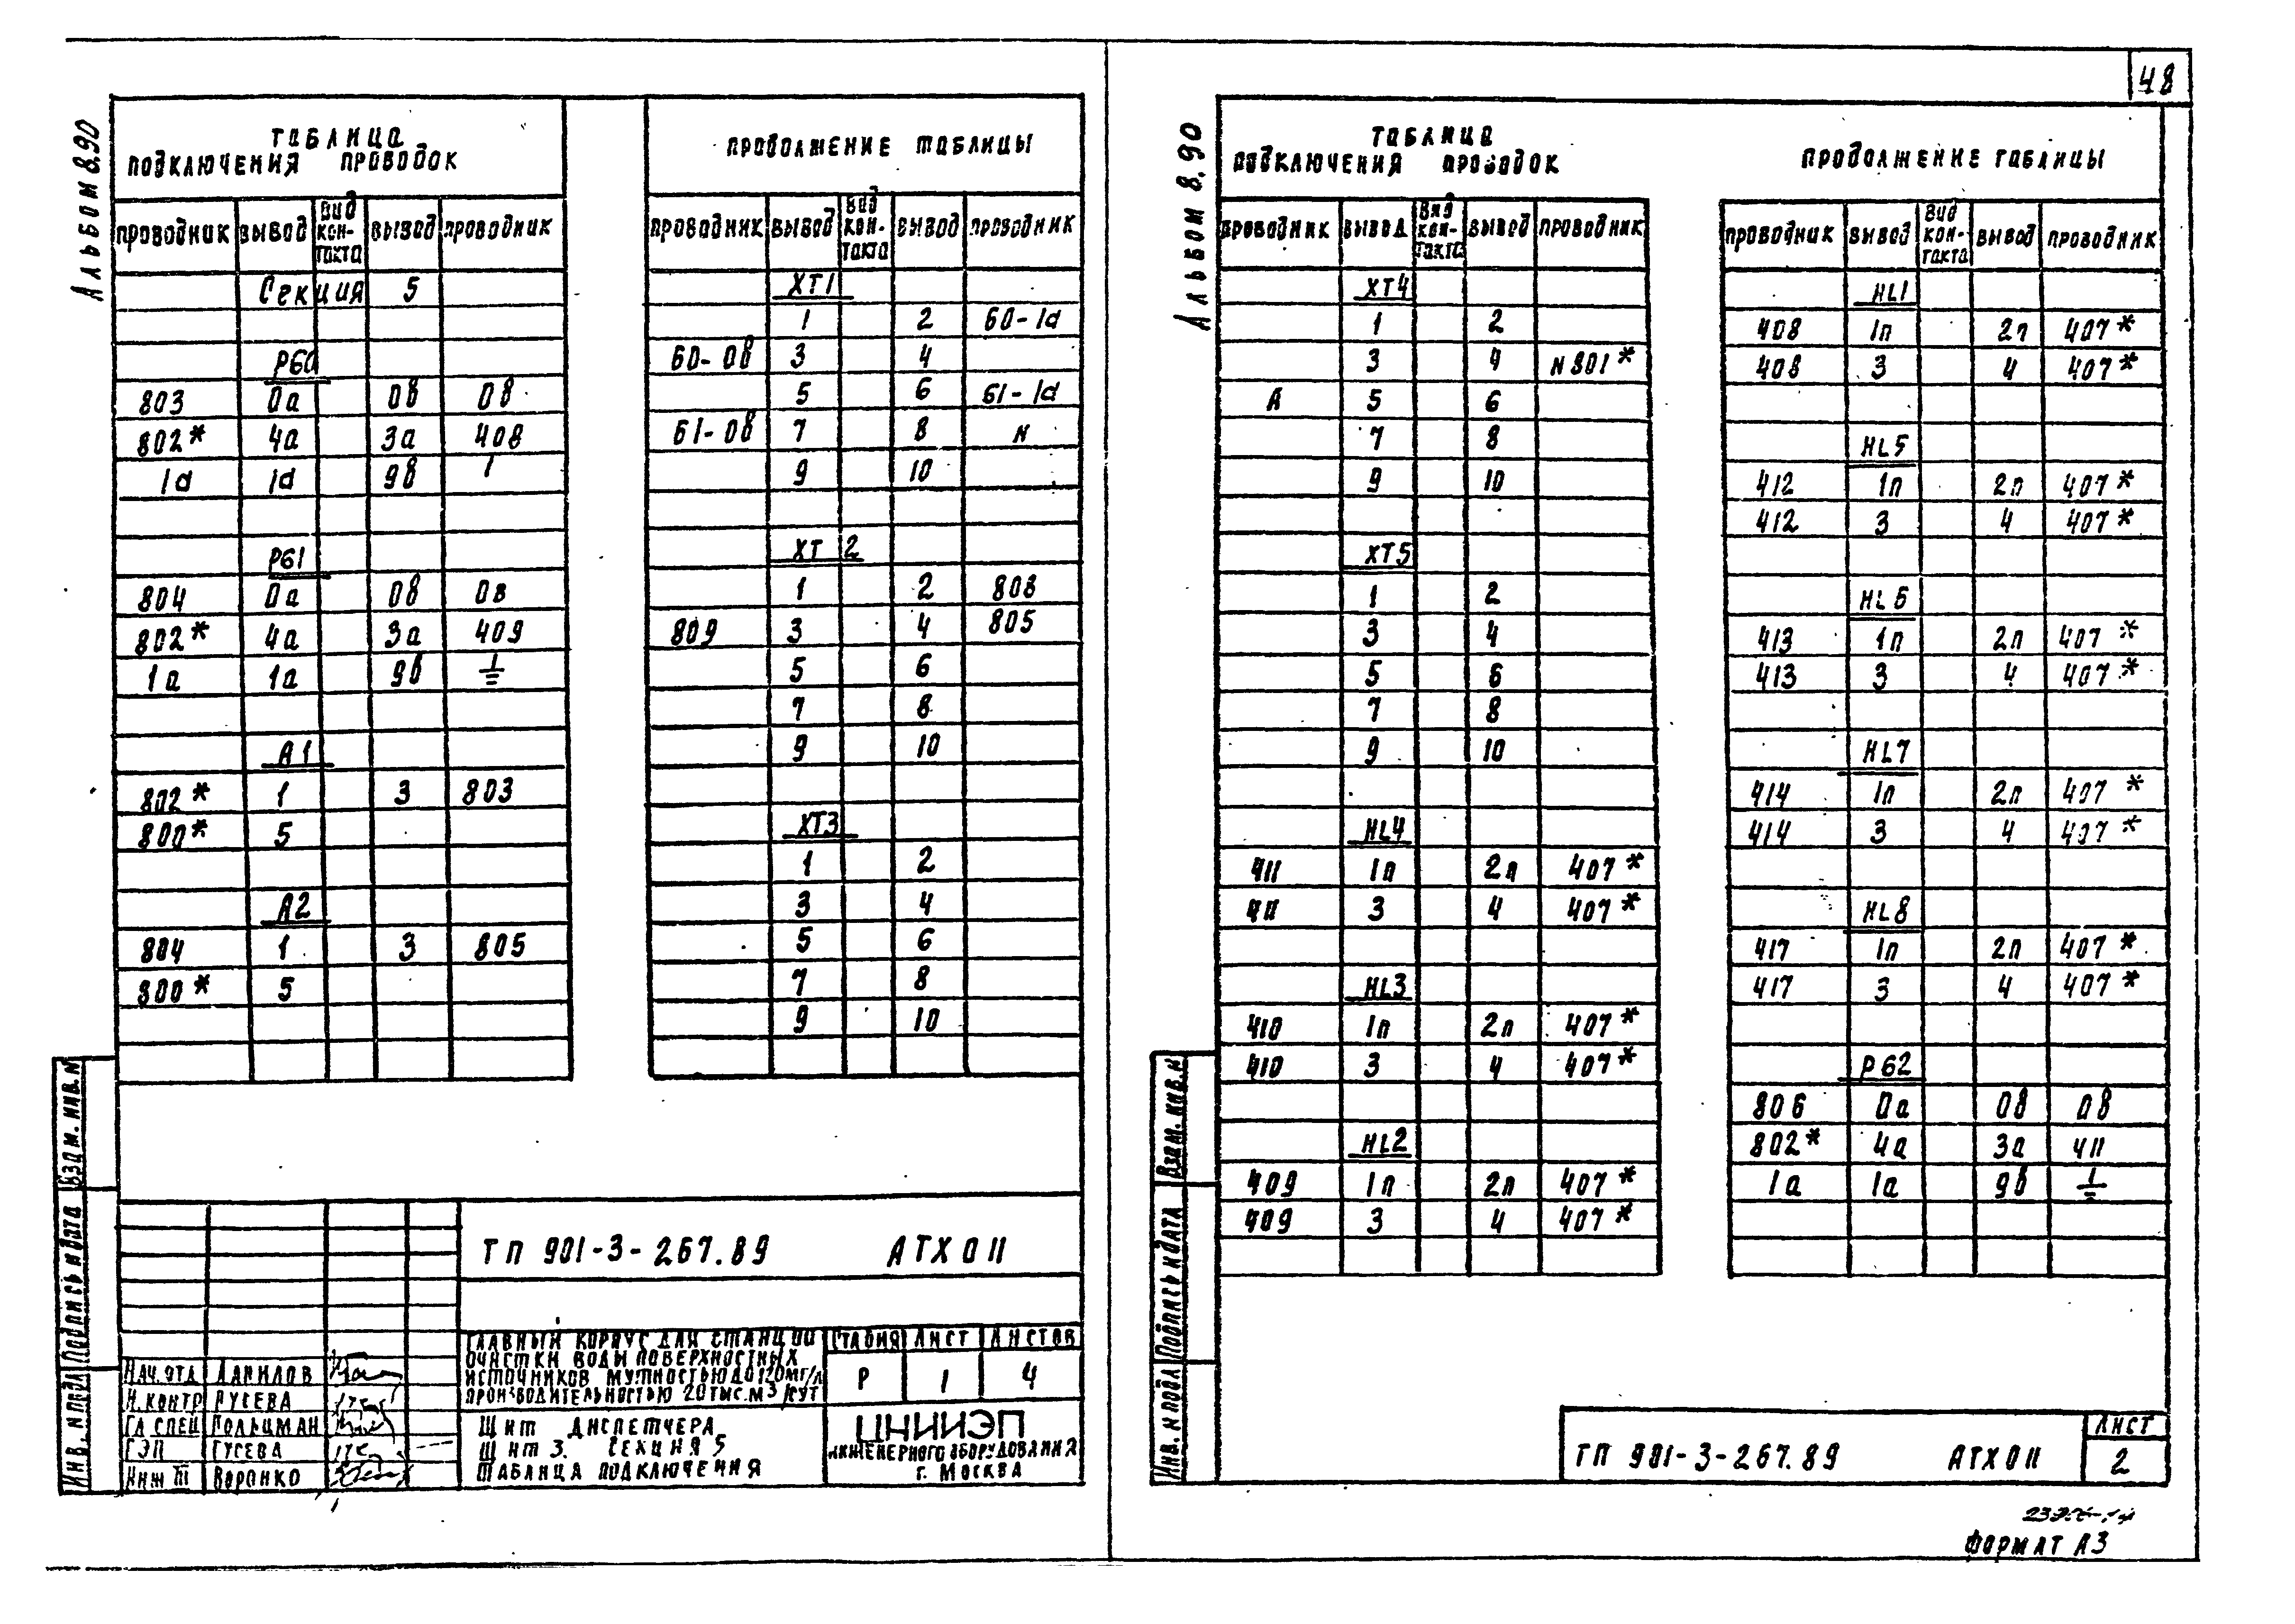 48
Альбом 8.90
Таблица
подключения проводок
проводник вывод вид кон-такта вывод проводник
Секция 5
Р60
803 0а 0в 0в
802* 4а 3а 408
1а 1а 9в
Р61
804 0а 0в 0в
802* 4а 3а 409
1а 1а 9в ⏚
А1
802* 1 3 803
800* 5
А2
804 1 3 805
800* 5
Продолжение таблицы
проводник вывод вид кон-такта вывод проводник
XT1
1 2 60-1а
60-0в 3 4
5 6 61-1а
61-0в 7 8 N
9 10
XT 2
1 2 808
809 3 4 805
5 6
7 8
9 10
XT3
1 2
3 4
5 6
7 8
9 10
ТП 901-3-267.89 АТХ011
Главный корпус для станции
очистки воды поверхностных
источников мутностью до 120мг/л
производительностью 20тыс.м3/сут
Стадия Лист Листов
Р 1 4
Щит диспетчера
Щит 3. Секция 5
Таблица подключения
ЦНИИЭП
инженерного оборудования
г. Москва
Нач.отд Данилов
Н.контр Гусева
Гл спец Гольцман
ГЭП Гусева
Инж III Воронко
Взам. инв. N
Подпись и дата
Инв. N подл
Альбом 8.90
Таблица
подключения проводок
проводник вывод вид кон-такта вывод проводник
XT4
1 2
3 4 N801*
А 5 6
7 8
9 10
XT5
1 2
3 4
5 6
7 8
9 10
HL4
411 1п 2п 407*
411 3 4 407*
HL3
410 1п 2п 407*
410 3 4 407*
HL2
409 1п 2п 407*
409 3 4 407*
Продолжение таблицы
проводник вывод вид кон-такта вывод проводник
HL1
408 1п 2п 407*
408 3 4 407*
HL5
412 1п 2п 407*
412 3 4 407*
HL6
413 1п 2п 407*
413 3 4 407*
HL7
414 1п 2п 407*
414 3 4 407*
HL8
417 1п 2п 407*
417 3 4 407*
Р62
806 0а 0в 0в
802* 4а 3а 411
1а 1а 9в ⏚
Взам. инв. N
Подпись и дата
Инв. N подл
ТП 901-3-267.89 АТХ011
Лист
2
Формат А3